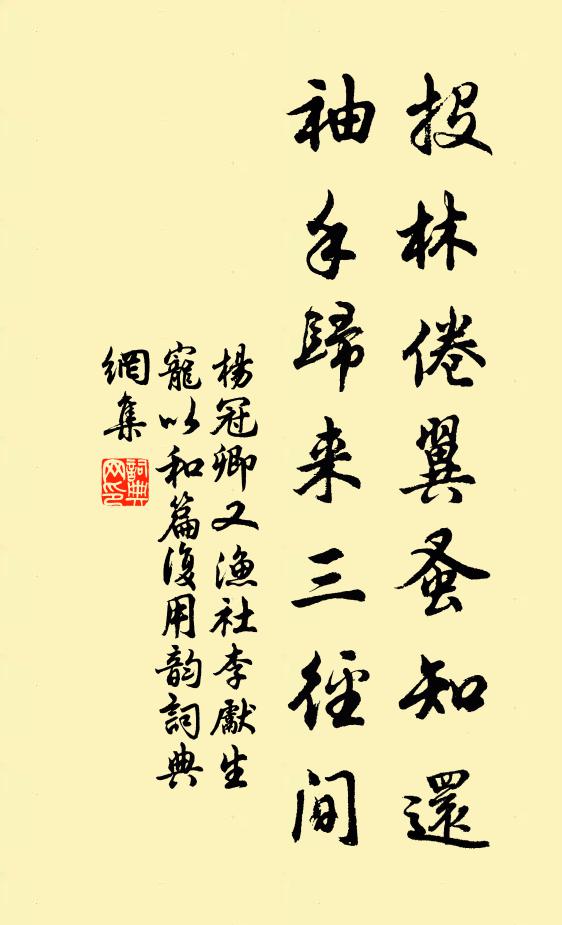 投林倦翼蚤知還
袖手歸来三徑間
楊冠卿又漁社李獻生
寵以和篇復用韵詞典
網集
詞典网印